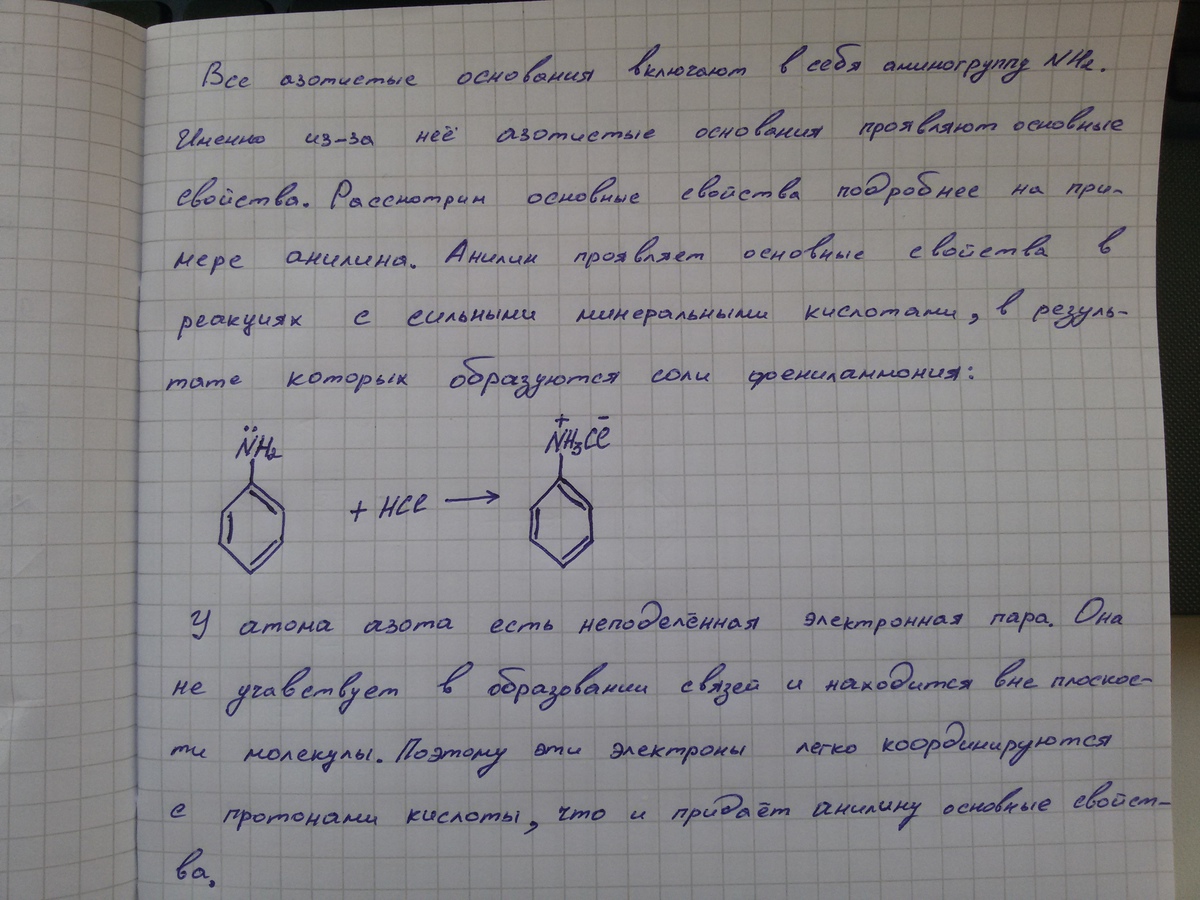 Все азотистые основания включают в себя аминогруппу NH₂.
Именно из-за неё азотистые основания проявляют основные
свойства. Рассмотрим основные свойства подробнее на при-
мере анилина. Анилин проявляет основные свойства в
реакциях с сильными минеральными кислотами, в резуль-
тате которых образуются соли фениламмония:
N̈H₂ + HCl → N⁺H₃Cl⁻
У атома азота есть неподелённая электронная пара. Она
не учавствует в образовании связей и находится вне плоскос-
ти молекулы. Поэтому эти электроны легко координируются
с протонами кислоты, что и придаёт анилину основные свойст-
ва,